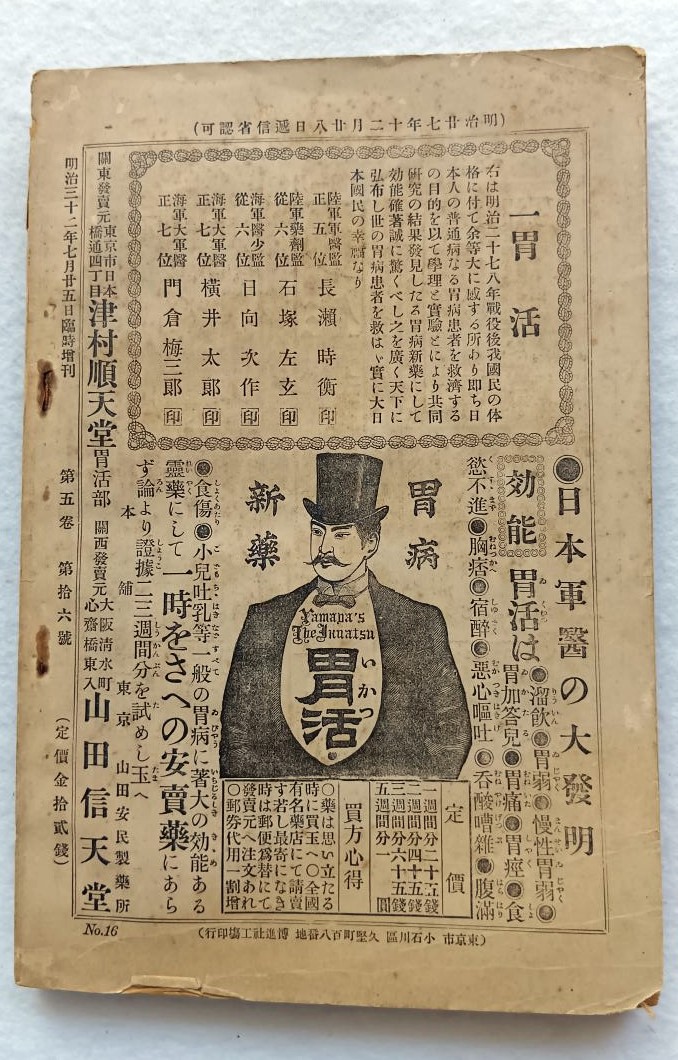 (明治廿七年十二月廿八日遞信省認可)
●日本軍醫の大發明
一胃活
右は明治二十七八年戰役後我國民の体
格に付て余等大に感する所あり即ち日
本人の普通病なる胃病患者を救濟する
の目的を以て學理と實驗とにより共同
研究の結果發見したる胃病新藥にして
効能確著誠に驚くべし之を廣く天下に
弘布し世の胃病患者を救はゞ實に大日
本國民の幸福なり
陸軍軍醫監 正五位 長瀬時衡 印
陸軍藥劑監 從六位 石塚左玄 印
海軍醫少監 從六位 日向次作 印
海軍大軍醫 正七位 横井太郎 印
海軍大軍醫 正七位 門倉梅三郎 印
効能 胃活は胃加答兒●溜飲●胃弱●慢性胃弱●
胃痛●胃痙●食
慾不進●胸痞●宿醉●惡心嘔吐●呑酸嘈雜●腹滿
胃病
新藥
Yamada's
The Innatsu
胃活
いかつ
●食傷●小兒吐乳等一般の胃病に著大の効能ある
靈藥にして一時をさへの安賣藥にあら
ず論より證據二三週間分を試めし玉へ
本舖 東京 山田安民製藥所
定價
一週間分二十五錢
二週間分四十五錢
三週間分六十五錢
五週間分一圓
買方心得
○藥は思い立たる
時に買玉へ○全國
有名藥店にて請賣
す若し最寄になき
時は郵便爲替にて
發賣元へ注文あれ
○郵券代用一割増
關東發賣元 東京市日本橋通四丁目 津村順天堂胃活部 關西發賣元 大阪清水町心齋橋東入 山田信天堂
明治三十二年七月廿五日臨時增刊 第五卷 第拾六號 (定價金拾貳錢)
No.16
(東京市 小石川區 久堅町百八番地 博進社工塲印行)